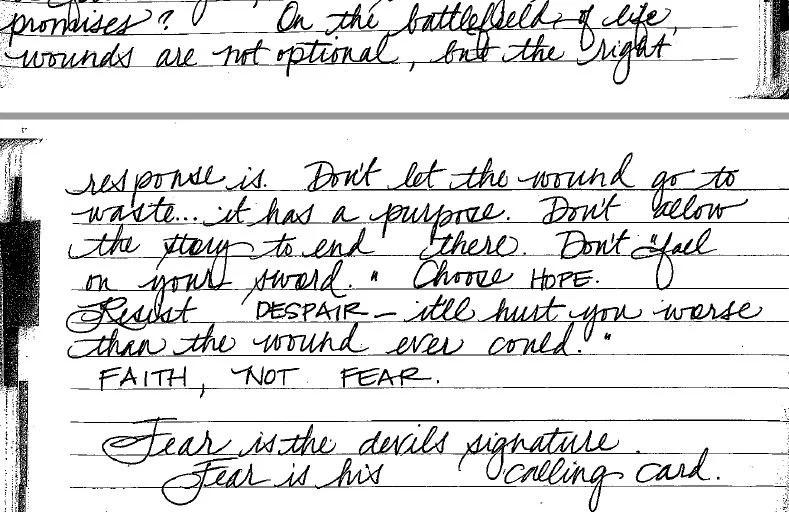 promises? On the battlefield of life,
wounds are not optional, but the right
response is. Don't let the wound go to
waste... it has a purpose. Don't allow
the story to end there. Don't "fall
on your sword." Choose HOPE.
Resist DESPAIR - it'll hurt you worse
than the wound ever could."
FAITH, NOT FEAR.
Fear is the devils signature.
Fear is his calling card.